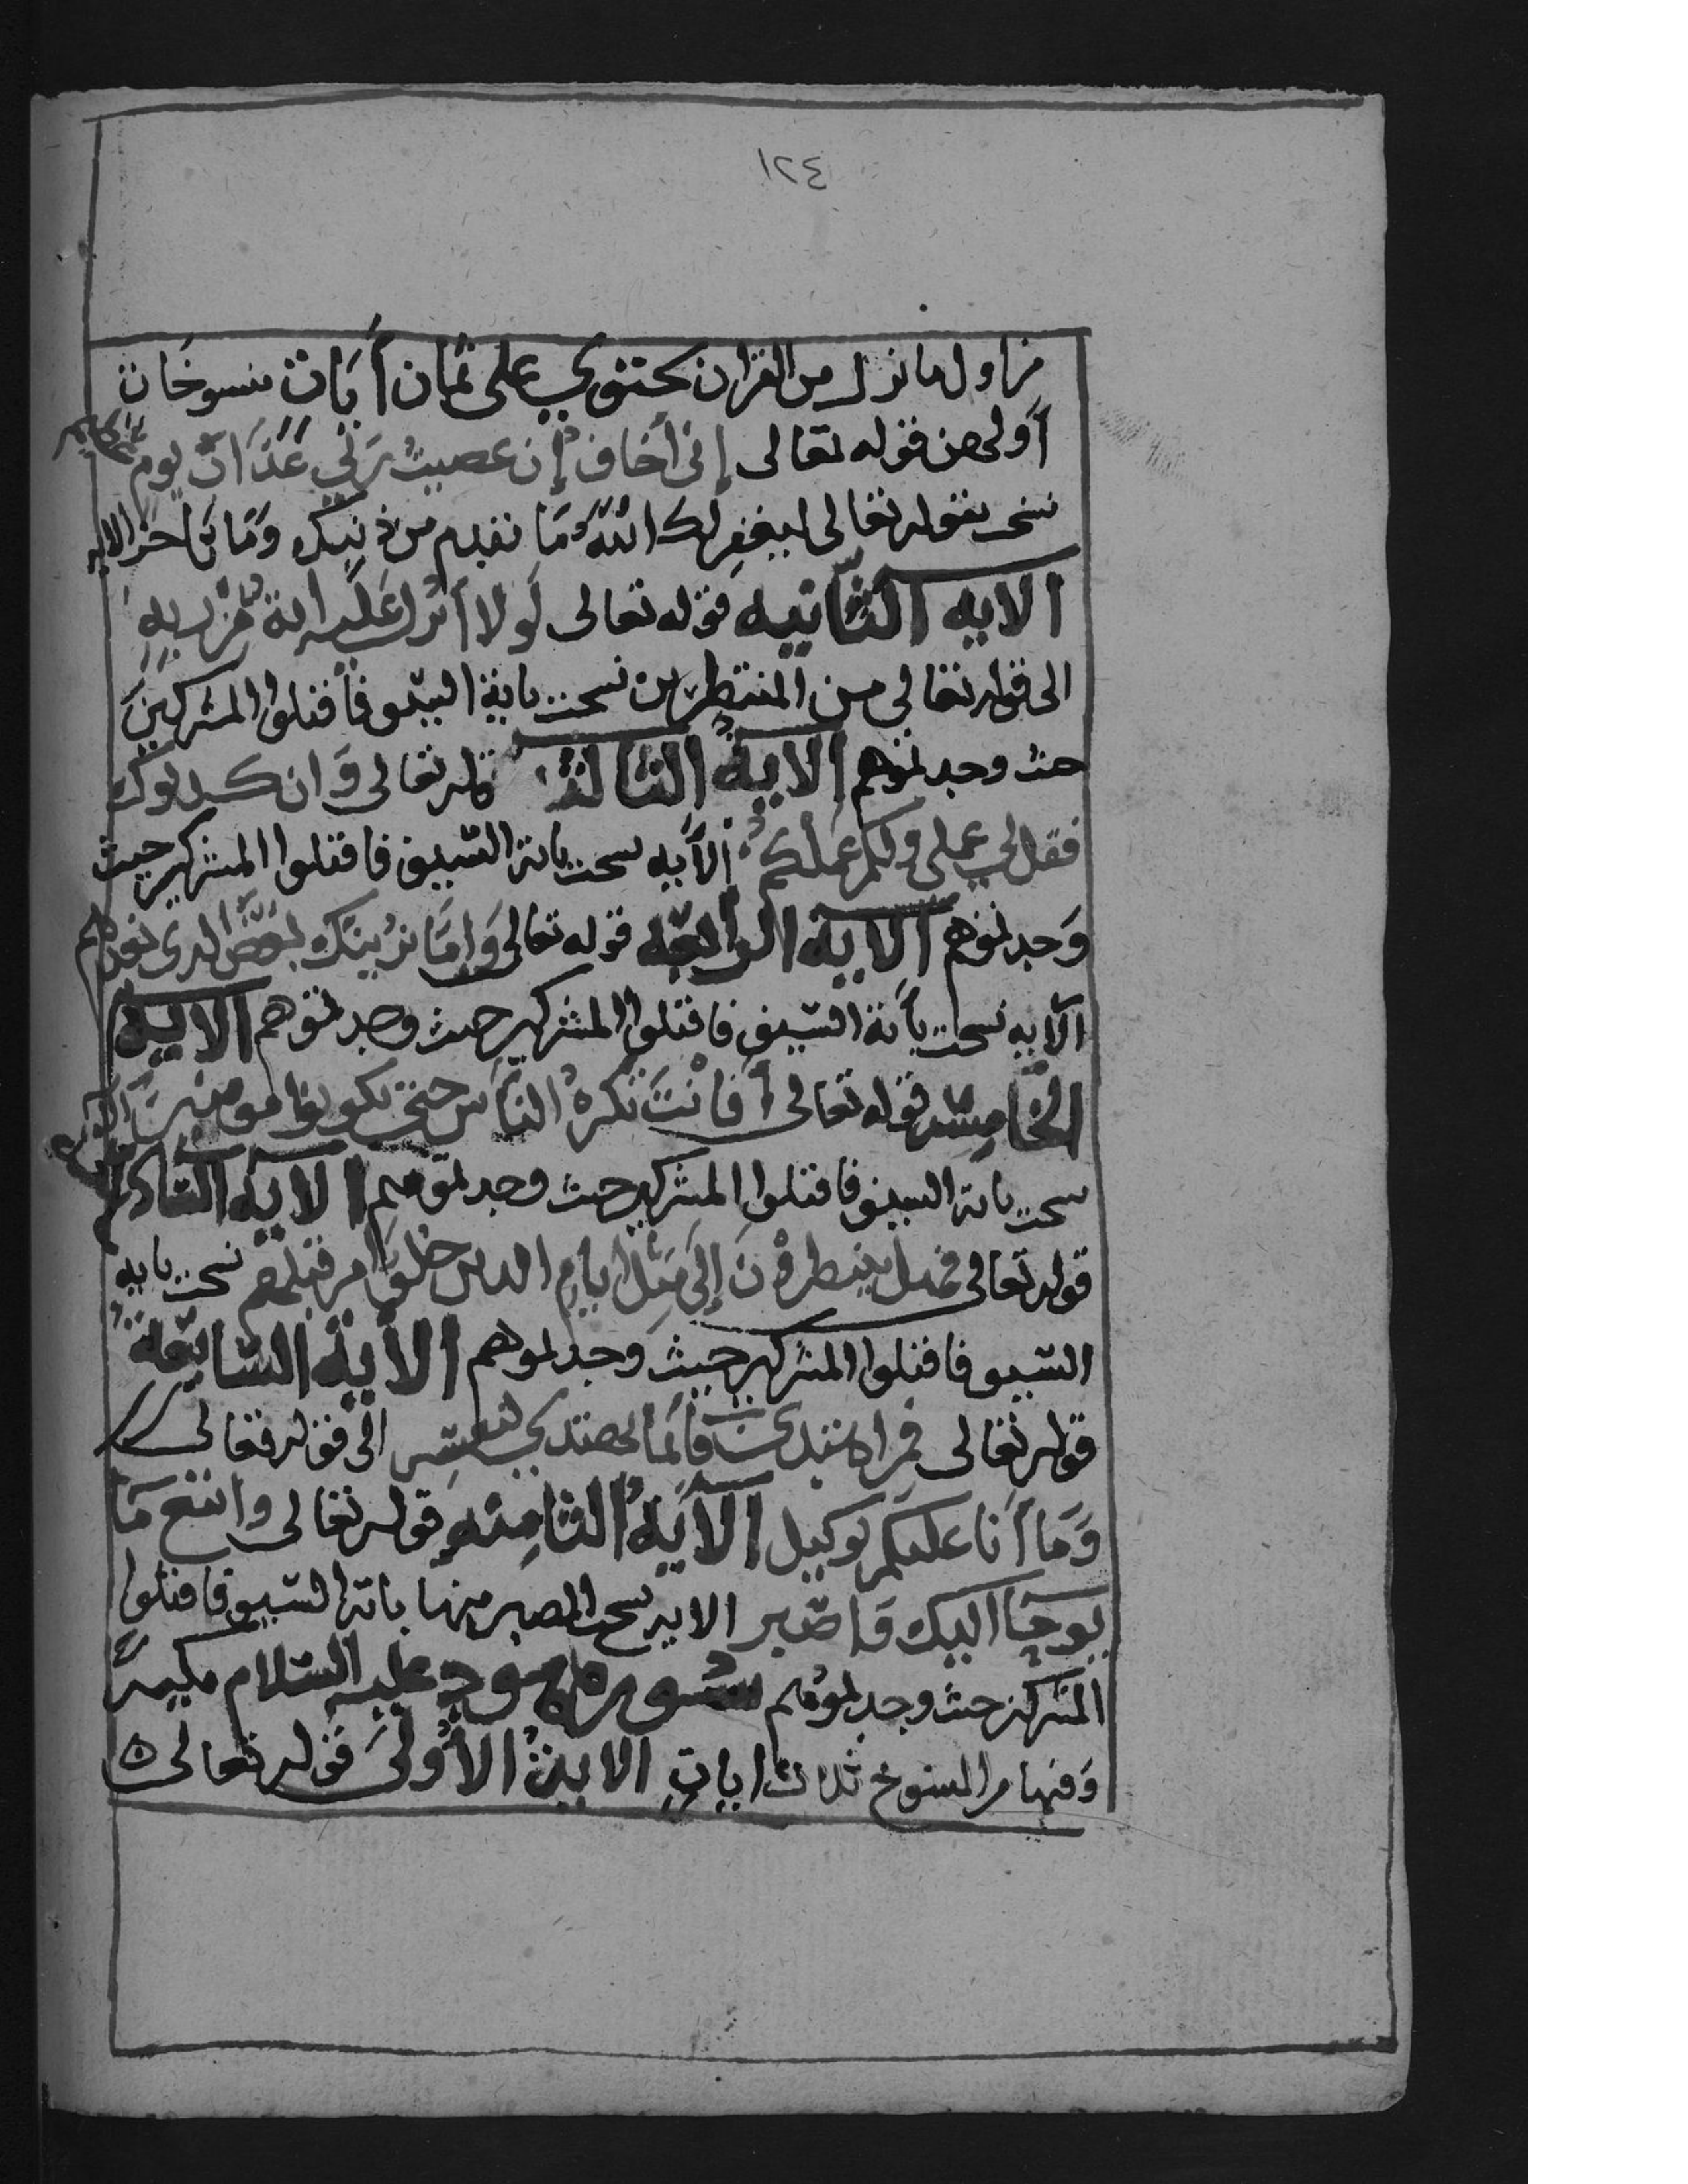 ١٢٤
من اول ما نزل من القران تحتوي على ثمان أيات منسوخات
أولهن قوله تعالى إني أخاف إن عصيت ربي عذاب يوم عظيم
نسخ بقوله تعالى ليغفر لك الله ما تقدم من ذنبك وما تأخر الايه
الايه الثانيه قوله تعالى لولا أنزل عليه اية من ربه
الى قوله تعالى من المنتظرين نسخت باية السيف فأقتلوا المشركين
حيث وجدتموهم الاية الثالثة قوله تعالى وان كذبوك
فقل لي عملي ولكم عملكم الأيه نسخت باية السيف فاقتلوا المشركين حيث
وجدتموهم الاية الرابعه قوله تعالى وإما نرينك بعض الذي نعدهم
الآيه نسخت بأية السيف فاقتلوا المشركين حيث وجدتموهم الاية
الخامسة قوله تعالى أفانت تكره الناس حتى يكونوا مومنين
نسخت باية السيف فاقتلوا المشركين حيث وجدتموهم الاية السادسة
قوله تعالى فهل ينتظرون إلى مثل ايام الذين خلوا من قبلهم نسخت بايه
السيف فاقتلوا المشركين حيث وجدتموهم الأية السابعة
قوله تعالى فمن اهتدى فأنما يهتدي لنفسه الى قوله تعالى
وما أنا عليكم بوكيل الأية الثامنه قوله تعالى واتبع ما
يوحا اليك واصبر الايه نسخ الصبر منها باية السيف فاقتلوا
المشركين حيث وجدتموهم سورة هود عليه السلام مكية
وفيها من المنسوخ ثلاث ايات الاية الأولى قوله تعالى